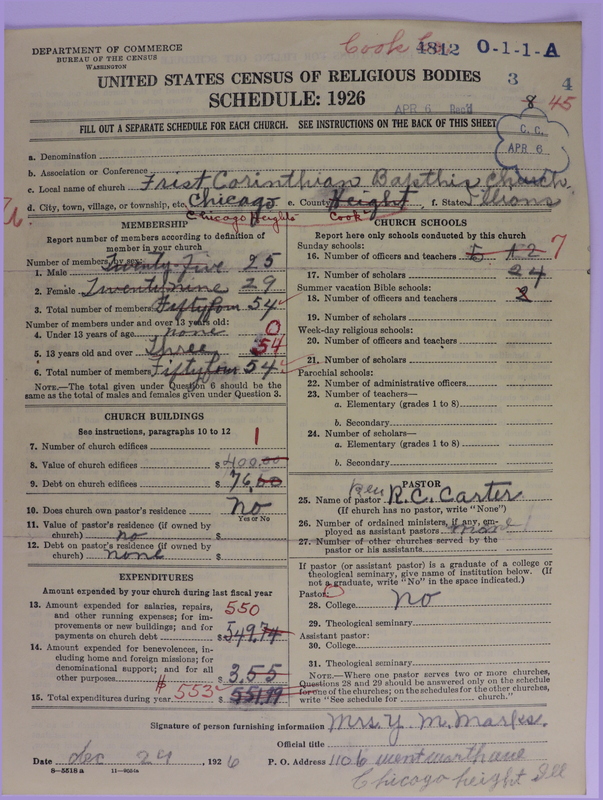 Cook Co.
4812 O-1-1-A
DEPARTMENT OF COMMERCE
BUREAU OF THE CENSUS
WASHINGTON
UNITED STATES CENSUS OF RELIGIOUS BODIES
3 4
SCHEDULE: 1926
8 45
APR 6 Rec'd
FILL OUT A SEPARATE SCHEDULE FOR EACH CHURCH. SEE INSTRUCTIONS ON THE BACK OF THIS SHEET
C. C.
APR 6
a. Denomination
b. Association or Conference
c. Local name of church Frist Corinthian Bapsthis Church
d. City, town, village, or township, etc. Chicago e. County Height f. State Illions
Chicago Heights Cook
MEMBERSHIP
Report number of members according to definition of
member in your church
Number of members by sex:
1. Male Twenty-Five 25
2. Female Twenty Nine 29
3. Total number of members Fifty four 54
Number of members under and over 13 years old:
4. Under 13 years of age none 0
5. 13 years old and over Three 54
6. Total number of members Fifty four 54
NOTE.—The total given under Question 6 should be the
same as the total of males and females given under Question 3.
CHURCH BUILDINGS
See instructions, paragraphs 10 to 12
7. Number of church edifices 1
8. Value of church edifices $ 400.00
9. Debt on church edifices $ 76.00
10. Does church own pastor's residence No
Yes or No
11. Value of pastor's residence (if owned by
church) no $
12. Debt on pastor's residence (if owned by
church) none $
EXPENDITURES
Amount expended by your church during last fiscal year
13. Amount expended for salaries, repairs, 550
and other running expenses; for im-
provements or new buildings; and for
payments on church debt $ 549.74
14. Amount expended for benevolences, in-
cluding home and foreign missions; for
denominational support; and for all
other purposes $ 3.55
15. Total expenditures during year $ 553 $ 551.19
CHURCH SCHOOLS
Report here only schools conducted by this church
Sunday schools:
16. Number of officers and teachers 5 12 7
17. Number of scholars 24
Summer vacation Bible schools:
18. Number of officers and teachers 2
19. Number of scholars
Week-day religious schools:
20. Number of officers and teachers
21. Number of scholars
Parochial schools:
22. Number of administrative officers
23. Number of teachers—
a. Elementary (grades 1 to 8)
b. Secondary
24. Number of scholars—
a. Elementary (grades 1 to 8)
b. Secondary
PASTOR
25. Name of pastor Rev R. C. Carter
(If church has no pastor, write "None")
26. Number of ordained ministers, if any, em-
ployed as assistant pastors
27. Number of other churches served by the
pastor or his assistants
If pastor (or assistant pastor) is a graduate of a college or
theological seminary, give name of institution below. (If
not a graduate, write "No" in the space indicated.)
Pastor:
28. College No
29. Theological seminary
Assistant pastor:
30. College
31. Theological seminary
NOTE.—Where one pastor serves two or more churches,
Questions 28 and 29 should be answered only on the schedule
for one of the churches; on the schedules for the other churches,
write "See schedule for church."
Signature of person furnishing information Mrs. Y. M. Marks.
Official title
Date dec 29, 1926 P. O. Address 1106 wentworth ave
8—5518 a
Chicago height Ill